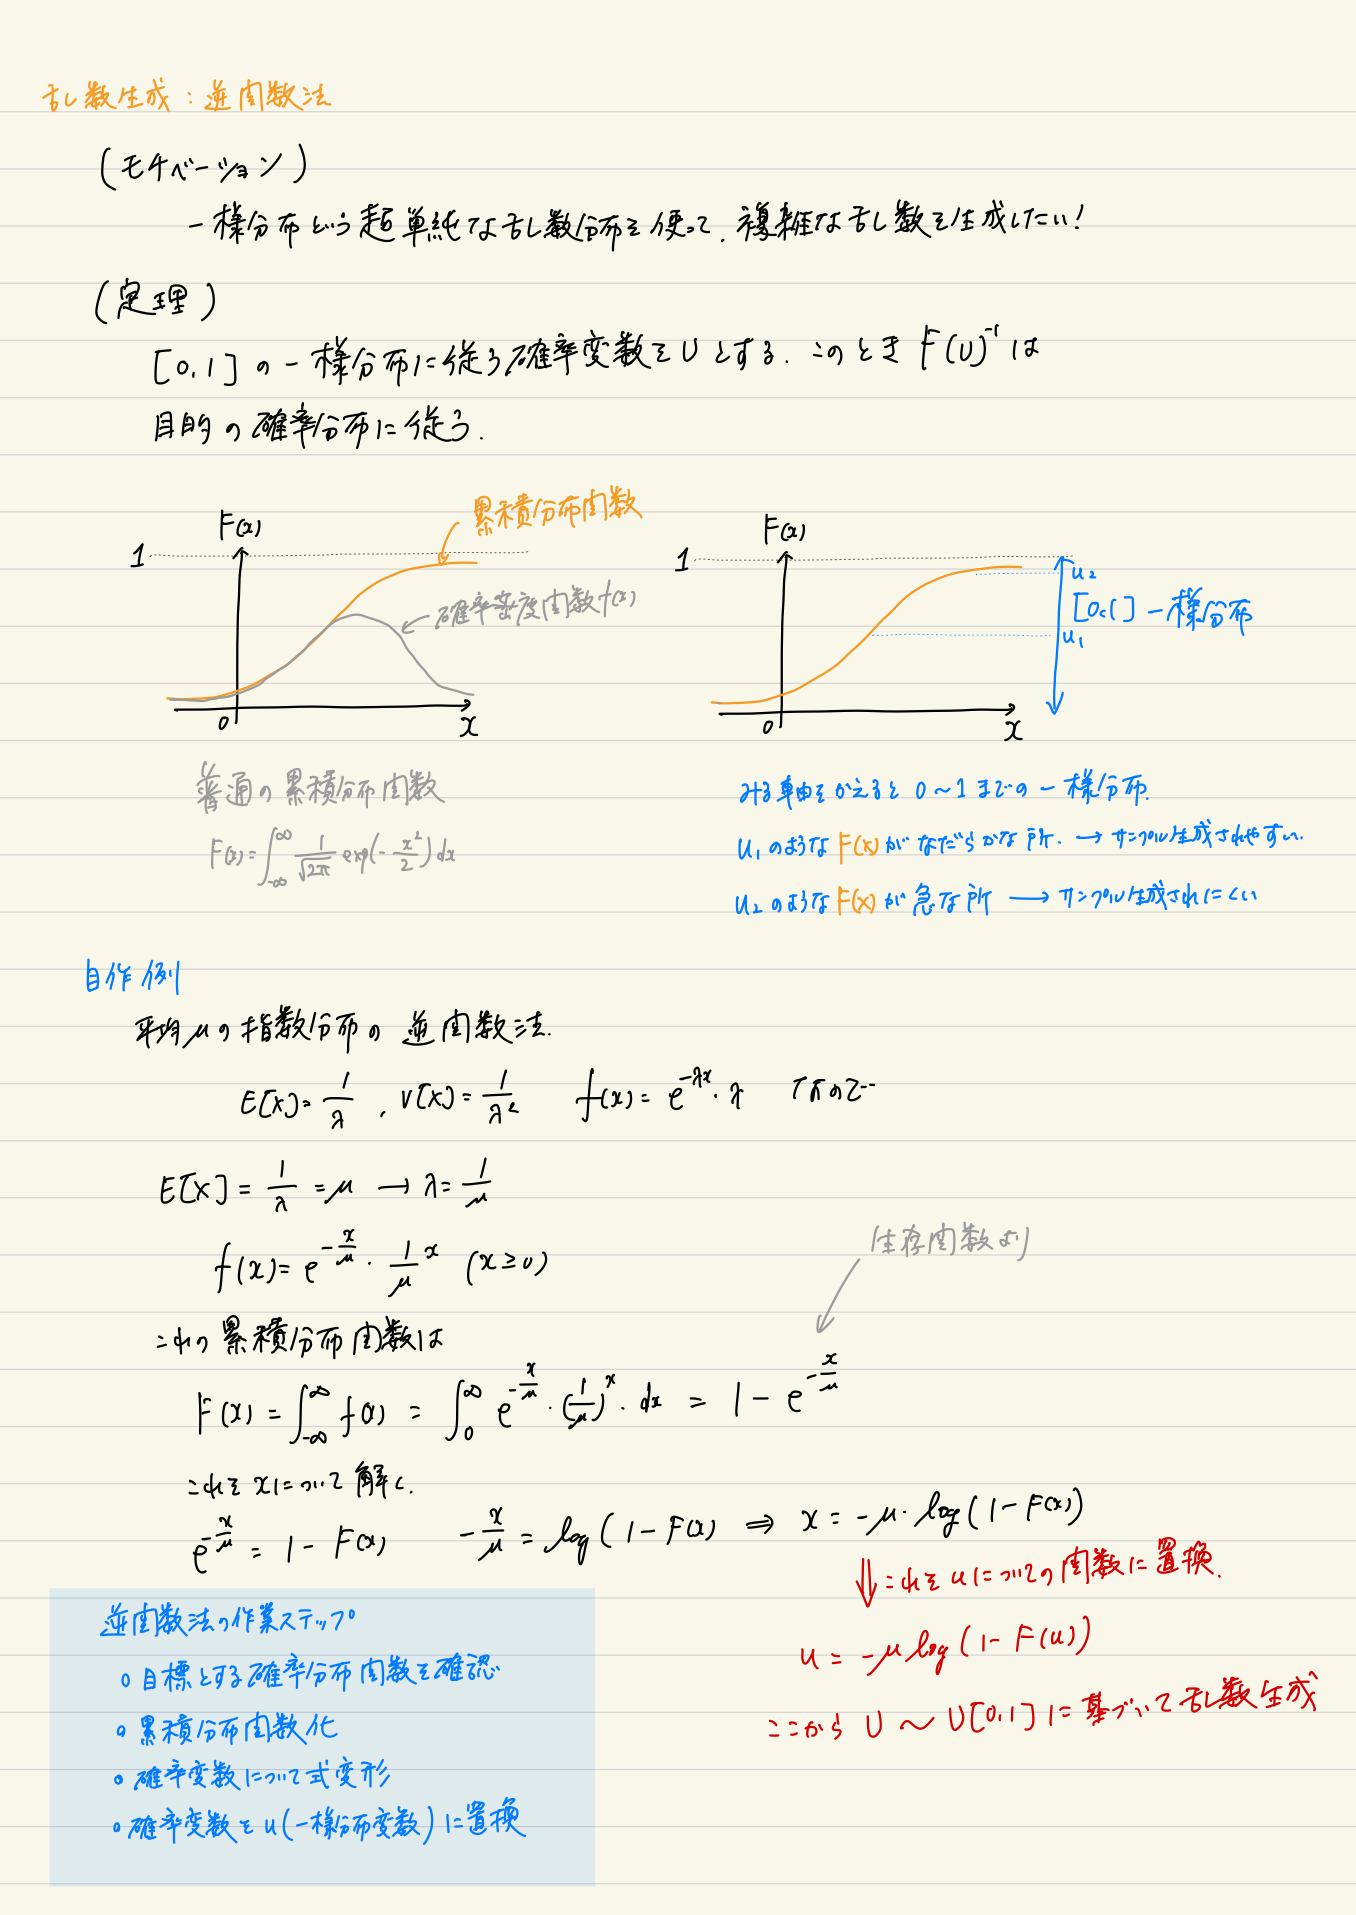 乱数生成：逆関数法
（モチベーション）
一様分布という超単純な乱数分布を使って、複雑な乱数を生成したい！
（定理）
[0,1]の一様分布に従う確率変数をUとする．このとき F(U)⁻¹は
目的の確率分布に従う．
累積分布関数
F(x)
1
確率密度関数f(x)
0
x
F(x)
1
u₂
[0,1] 一様分布
u₁
0
x
普通の累積分布関数
F(x)=∫_{-∞}^{∞} 1/√2π exp(-x²/2)dx
みる軸をかえると 0～1までの一様分布．
u₁のようなF(x)がなだらかな所．→サンプル生成されやすい．
u₂のようなF(x)が急な所 →サンプル生成されにくい
自作例
平均μの指数分布の逆関数法．
E[X]=1/λ , V[X]=1/λ² f(x)=e^{-λx}・λ なので…
E[X]=1/λ=μ → λ=1/μ
f(x)=e^{-x/μ}・1/μ^x (x≥0)
生存関数より
これの累積分布関数は
F(x)=∫_{-∞}^{∞}f(x) = ∫_{0}^{∞} e^{-x/μ}・(1/μ)^x・dx = 1-e^{-x/μ}
これをxについて解く．
e^{-x/μ}=1-F(x) -x/μ=log(1-F(x)) ⇒ x=-μ・log(1-F(x))
⇓これをuについての関数に置換．
u=-μlog(1-F(u))
ここから U～U[0,1]に基づいて乱数生成
逆関数法の作業ステップ
○目標とする確率分布関数を確認
○累積分布関数化
○確率変数について式変形
○確率変数をu(一様分布変数)に置換